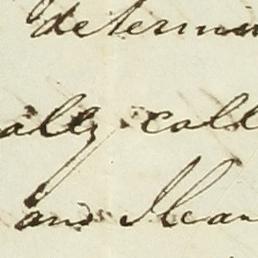 determin
ally call
and Ilean